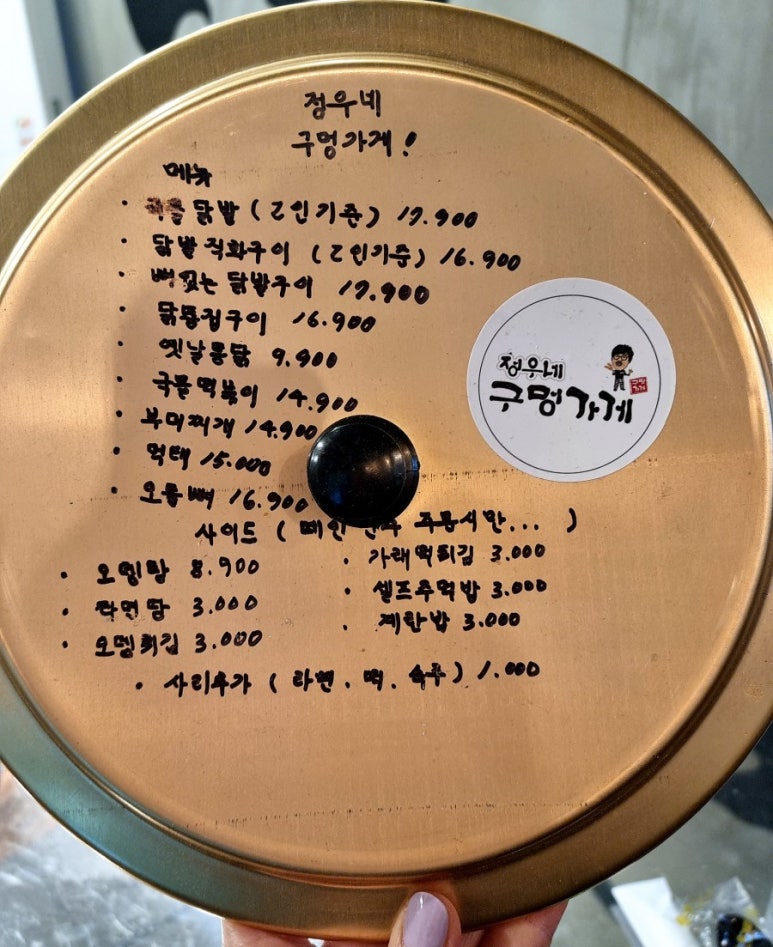 정우네
구멍가게!
메뉴
· 국물 닭발 (2인기준) 17.900
· 닭발 직화구이 (2인기준) 16.900
· 뼈있는 닭발구이 17.900
· 닭똥집구이 16.900
· 옛날통닭 9.900
· 국물떡볶이 14.900
· 부대찌개 14.900
· 먹태 15.000
· 오돌뼈 16.900
사이드 ( 메인 안주 주문시만... )
· 오뎅탕 8.900
· 라면땅 3.000
· 오뎅튀김 3.000
· 가래떡튀김 3.000
· 셀프주먹밥 3.000
· 계란밥 3.000
· 사리추가 (라면. 떡. ) 1.000
정우네
구멍가게